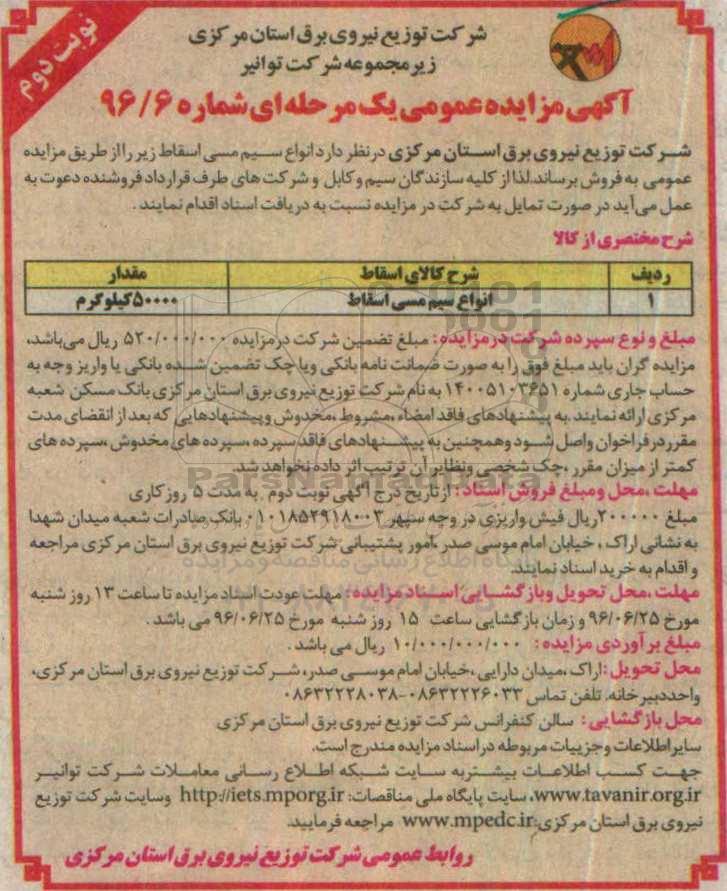 نوبت دوم
شرکت توزیع نیروی برق استان مرکزی
زیر مجموعه شرکت توانیر
آگهی مزایده عمومی یک مرحله ای شماره ۹۶/۶
شرکت توزیع نیروی برق استان مرکزی در نظر دارد انواع سیم مسی اسقاط زیر را از طریق مزایده
عمومی به فروش برساند. لذا از کلیه سازندگان سیم و کابل و شرکت های طرف قرارداد فروشنده دعوت به
عمل می آید در صورت تمایل به شرکت در مزایده نسبت به دریافت اسناد اقدام نمایند.
شرح مختصری از کالا
ردیف شرح کالای اسقاط مقدار
۱ انواع سیم مسی اسقاط ۵۰۰۰۰کیلوگرم
مبلغ و نوع سپرده شرکت در مزایده: مبلغ تضمین شرکت در مزایده ۵۲۰/۰۰۰/۰۰۰ ریال می باشد،
مزایده گران باید مبلغ فوق را به صورت ضمانت نامه بانکی ویا چک تضمین شده بانکی یا واریز وجه به
حساب جاری شماره ۱۴۰۰۵۱۰۳۶۵۱ به نام شرکت توزیع نیروی برق استان مرکزی بانک مسکن شعبه
مرکزی ارائه نمایند .به پیشنهادهای فاقد امضاء ،مشروط ،مخدوش وپیشنهادهایی که بعد از انقضای مدت
مقرر در فراخوان واصل شود وهمچنین به پیشنهادهای فاقد سپرده ،سپرده های مخدوش ،سپرده های
کمتر از میزان مقرر ،چک شخصی ونظایر آن ترتیب اثر داده نخواهد شد.
مهلت ،محل ومبلغ فروش اسناد: از تاریخ درج آگهی نوبت دوم به مدت ۵ روز کاری
مبلغ ۲۰۰۰۰۰ریال فیش واریزی در وجه سپهر ۰۱۰۱۸۵۲۹۱۸۰۰۳ بانک صادرات شعبه میدان شهدا
به نشانی اراک ، خیابان امام موسی صدر ،امور پشتیبانی شرکت توزیع نیروی برق استان مرکزی مراجعه
و اقدام به خرید اسناد نمایند
مهلت ،محل تحویل وبازگشایی اسناد مزایده: مهلت عودت اسناد مزایده تا ساعت ۱۳ روز شنبه
مورخ ۹۶/۰۶/۲۵ و زمان بازگشایی ساعت ۱۵ روز شنبه مورخ ۹۶/۰۶/۲۵ می باشد .
مبلغ برآوردی مزایده: ۱۰/۰۰۰/۰۰۰/۰۰۰ ریال می باشد .
محل تحویل: اراک ،میدان دارایی ،خیابان امام موسی صدر، شرکت توزیع نیروی برق استان مرکزی،
واحددبیرخانه. تلفن تماس ۰۸۶۳۲۲۲۶۰۳۳-۰۸۶۳۲۲۲۸۰۳۸
محل بازگشایی: سالن کنفرانس شرکت توزیع نیروی برق استان مرکزی
سایر اطلاعات وجزییات مربوطه در اسناد مزایده مندرج است.
جهت کسب اطلاعات بیشتر به سایت شبکه اطلاع رسانی معاملات شرکت توانیر
www.tavanir.org.ir، سایت پایگاه ملی مناقصات: http://iets.mporg.ir وسایت شرکت توزیع
نیروی برق استان مرکزی: www.mpedc.ir مراجعه فرمایید.
روابط عمومی شرکت توزیع نیروی برق استان مرکزی
ParsNamadData